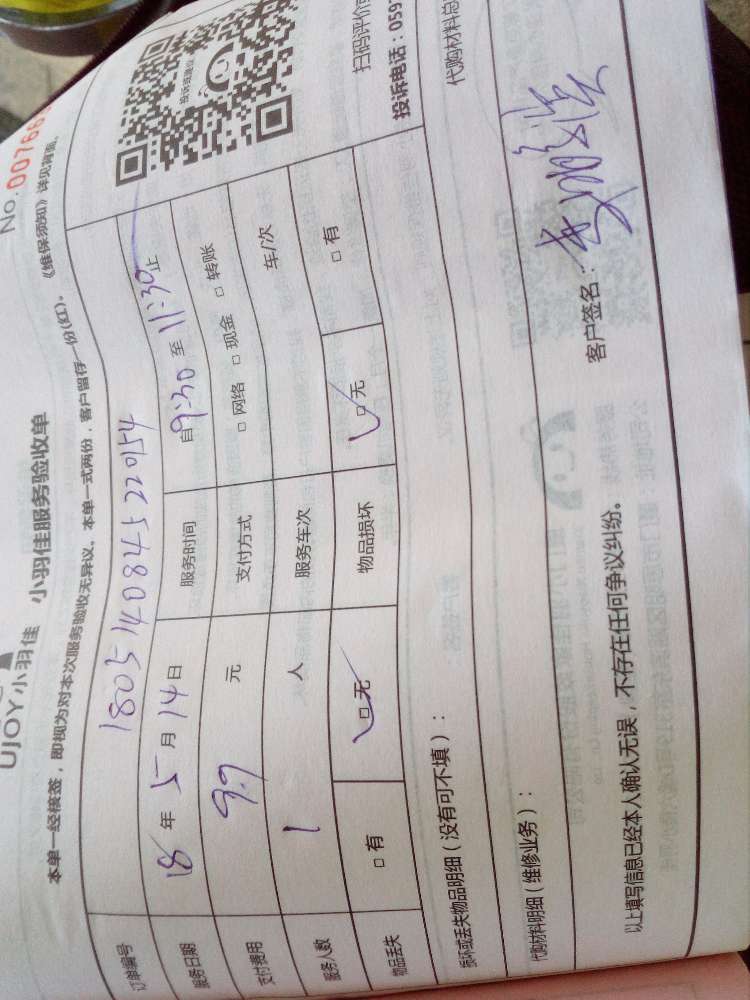 No. 00766
UJOY小羽佳 小羽佳服务验收单
本单一经核签，即视为对本次服务验收无异议。本单一式两份，客户留存一份(红)。《维保须知》详见背面。
订单编号 1805140845220154
投诉或建议
服务日期 18年5月14日 服务时间 自9:30至11:30止
支付费用 9.9 元 支付方式 □ 网络 □ 现金 □ 转账
服务人数 1 人 服务车次 车/次
物品丢失 □ 有 □ 无 物品损坏 □ 无 □ 有
扫码评价
投诉电话：059
损坏或丢失物品明细（没有可不填）：
代购材料明细（维修业务）：
代购材料总
以上填写信息已经本人确认无误，不存在任何争议纠纷。
客户签名：